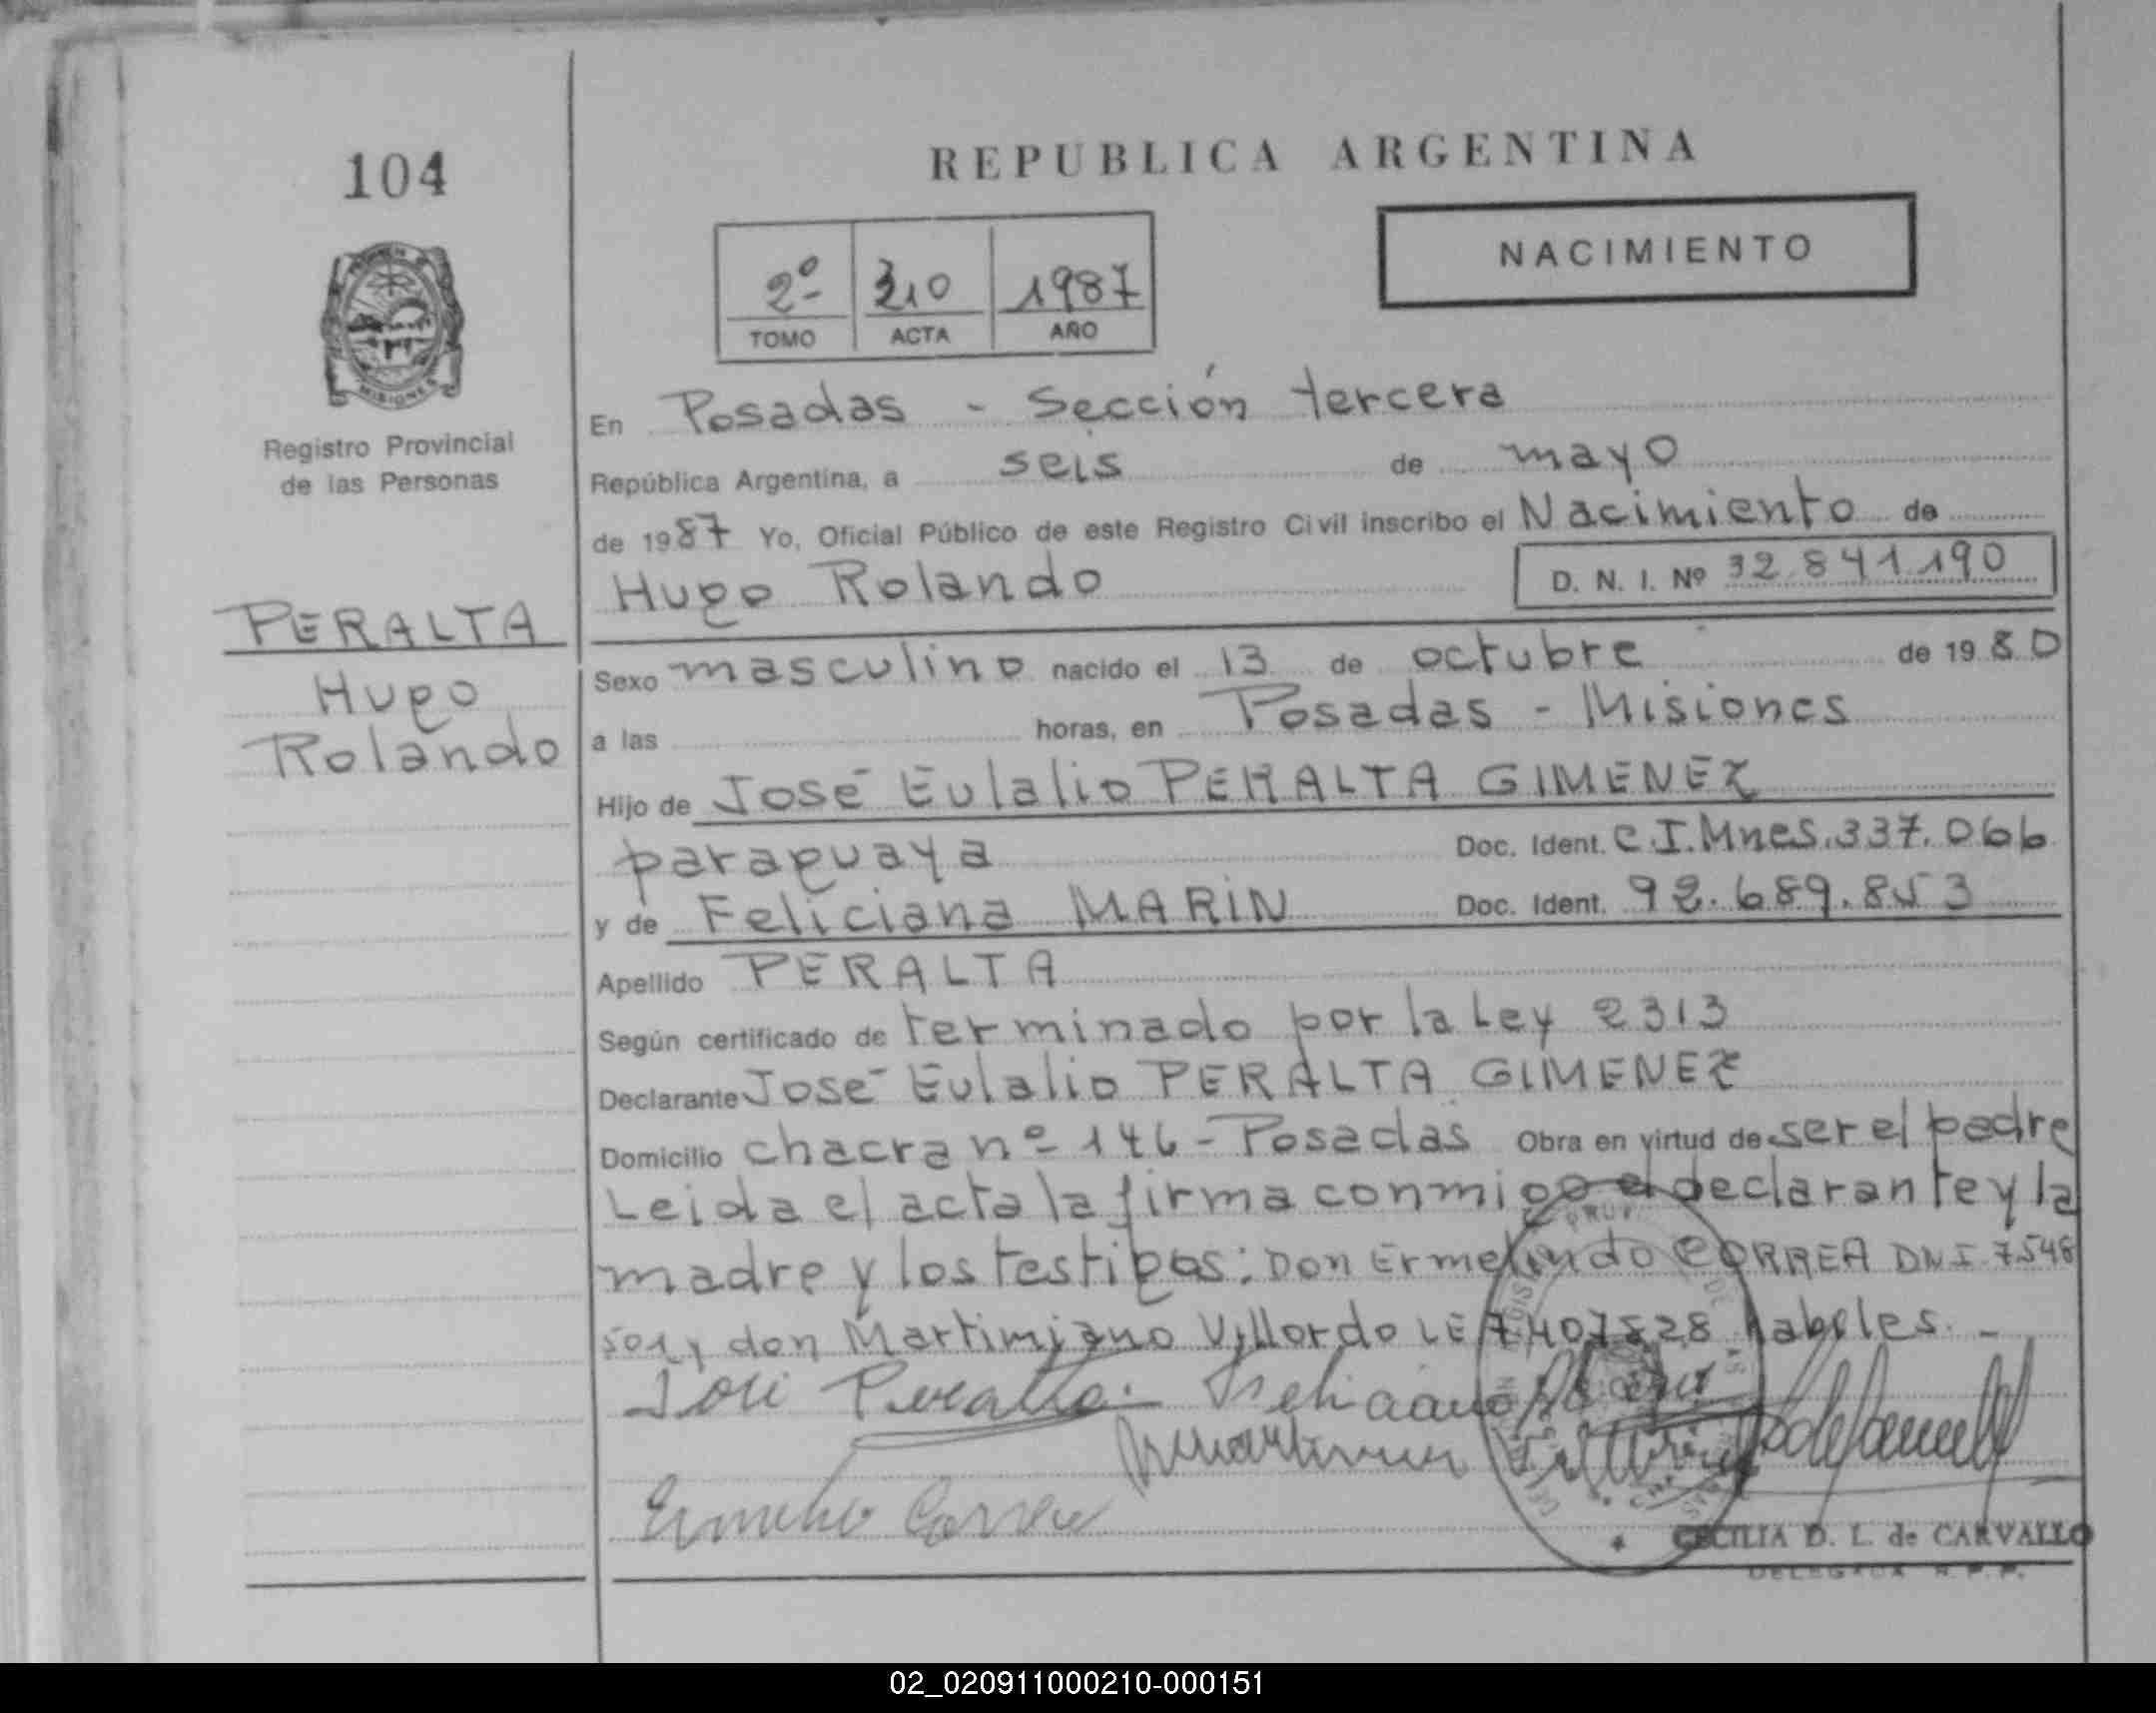 104
REPUBLICA ARGENTINA
NACIMIENTO
2º 210 1987
TOMO ACTA AÑO
MISIONES
Registro Provincial
de las Personas
PERALTA
Hugo
Rolando
En Posadas - Sección tercera
República Argentina, a seis de mayo
de 1987 Yo, Oficial Público de este Registro Civil inscribo el Nacimiento de
Hugo Rolando D. N. I. Nº 32.841.190
Sexo masculino nacido el 13 de octubre de 1980
a las horas, en Posadas - Misiones
Hijo de José Eulalio PERALTA GIMENEZ
paraguaya Doc. Ident. C.I.Mnes.337.066
y de Feliciana MARIN Doc. Ident. 92.689.853
Apellido PERALTA
Según certificado de terminado por la Ley 2313
Declarante José Eulalio PERALTA GIMENEZ
Domicilio chacra nº 146 - Posadas Obra en virtud de ser el padre
Leida el acta la firma conmigo el declarante y la
madre y los testigos: Don Ermelindo CORREA DNI 7.548
501 y don Martimiano Villordo LE 7.407.828 habeles. -
José Peralta
CECILIA D. L. de CARVALLO
DELEGADA R. P. P.
02_020911000210-000151